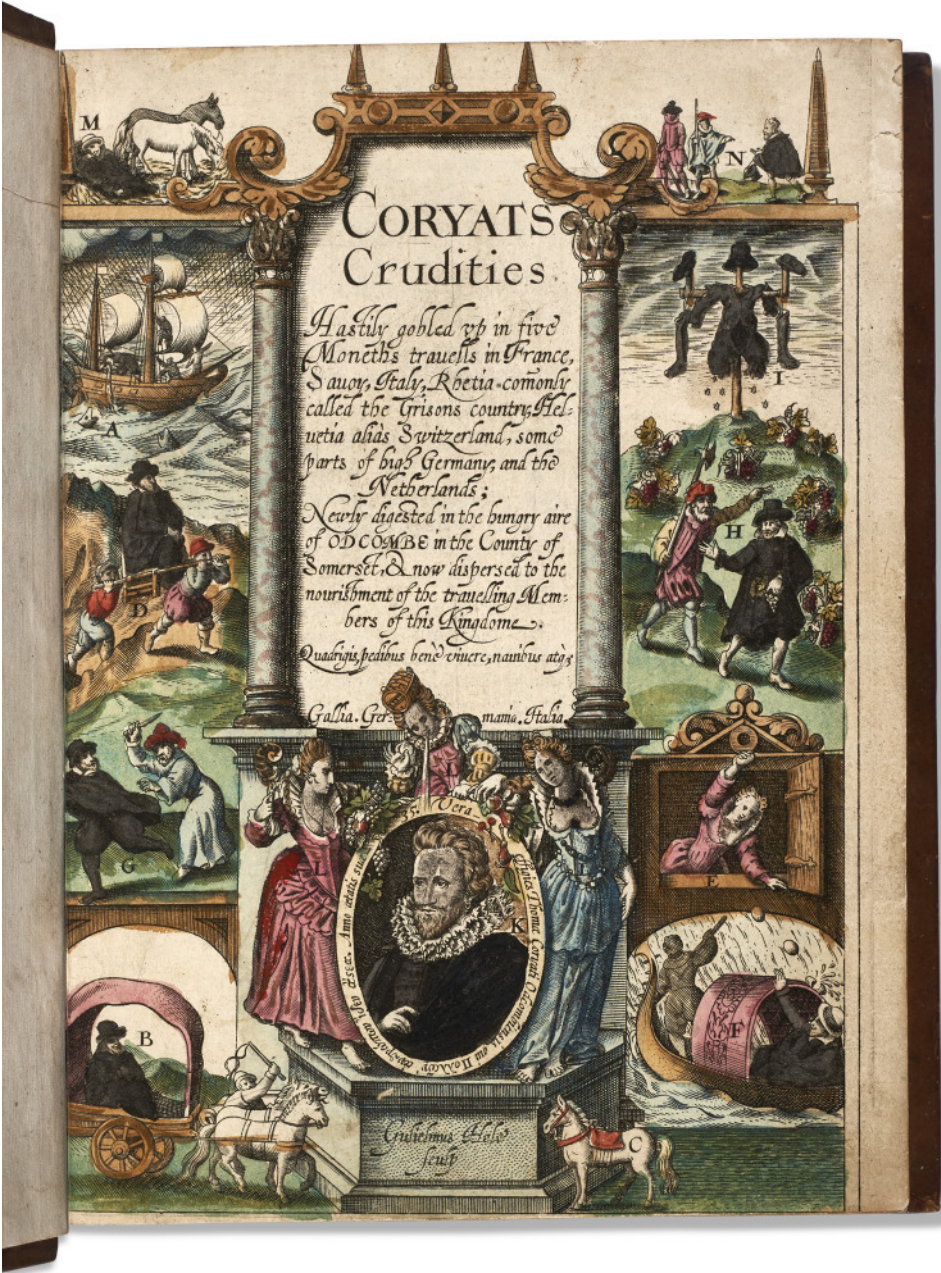 M
N
CORYATS
Crudities
Hastily gobled vp in five
Moneths travells in France,
Savoy, Italy, Rhetia comonly
called the Grisons country, Hel-
vetia aliàs Switzerland, some
parts of high Germany, and the
Netherlands;
Newly digested in the hungry aire
of ODCOMBE in the County of
Somerset, & now dispersed to the
nourishment of the travelling Mem-
bers of this Kingdome.
Quadrigis, pedibus benè vivere, navibus atq;
Gallia. Ger- mania. Italia.
A
I
H
D
G
E
L
L
Vera
effigies Thomæ Coriati Odcombiensis qui Πολλῶν
Anno ætatis suæ 35.
K
B
F
Gulielmus Hole
sculp
C